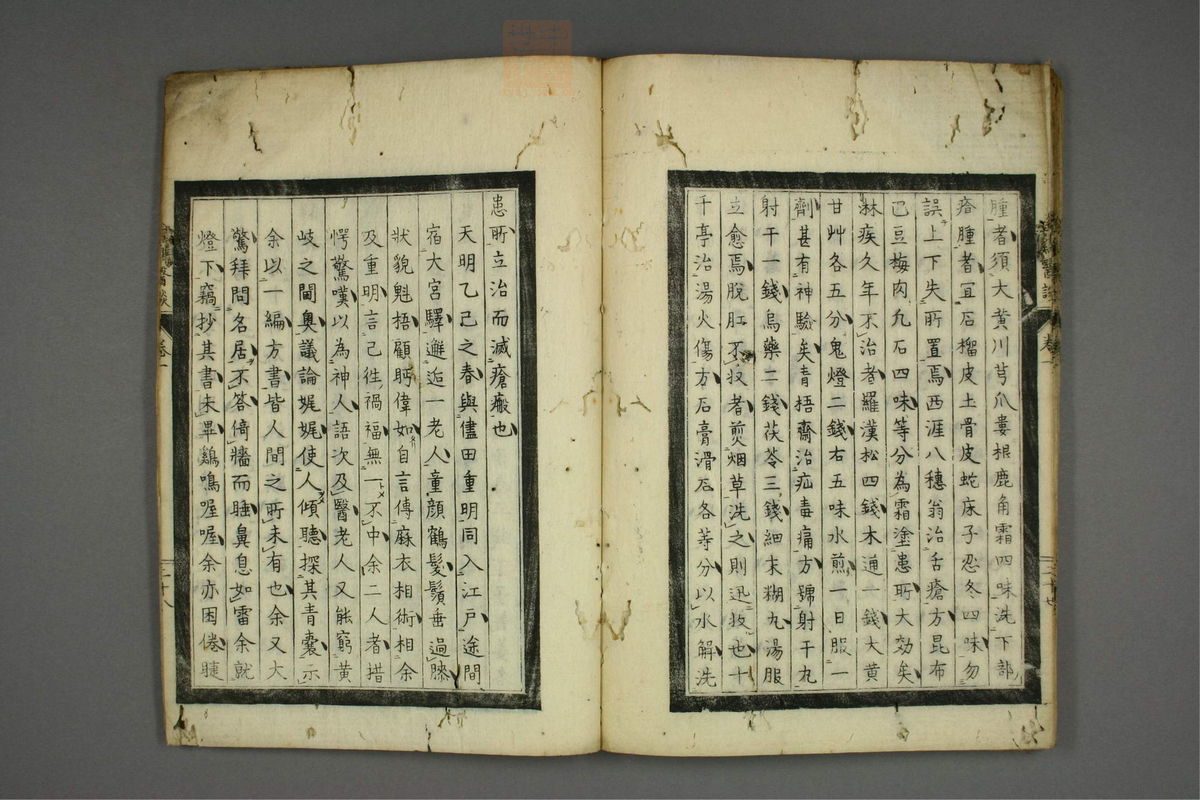 腫者須大黄川芎爪蔞根鹿角霜四味洗下部
瘡腫者冝石榴皮土骨皮蛇床子忍冬四味勿
誤上下失所置焉西涯八穗翁治舌瘡方昆布
巳豆梅肉九石四味等分為霜塗患所大効矣
淋疾久年不治者羅漢松四錢木通一錢大黄
甘艸各五分鬼燈二錢右五味水煎一日服一
劑甚有神驗矣青梧齋治疝毒痛方號射干丸
射干一錢烏藥二錢茯苓三錢細末糊丸湯服
立愈焉脫肛不收者煎烟草洗之則迅收也十
千亭治湯火傷方石膏滑石各等分以水解洗
患所立治而滅瘡瘢也
天明乙巳之春與儘田重明同入江戸途間
宿大宮驛邂逅一老人童顔鶴髪鬚垂過膝
狀貌魁梧顧眄偉如自言傳麻衣相術相余
及重明言已徃禍福無一不中余二人者措
愕驚嘆以為神人語次及醫老人又能窮黄
岐之閫奥議論娓娓使人傾聽探其青囊示
余以一編方書皆人間之所未有也余又大
驚拜問名居不答倚牆而睡鼻息如雷余就
燈下竊抄其書未畢鷄鳴喔喔余亦困倦睫
卷一
二十八